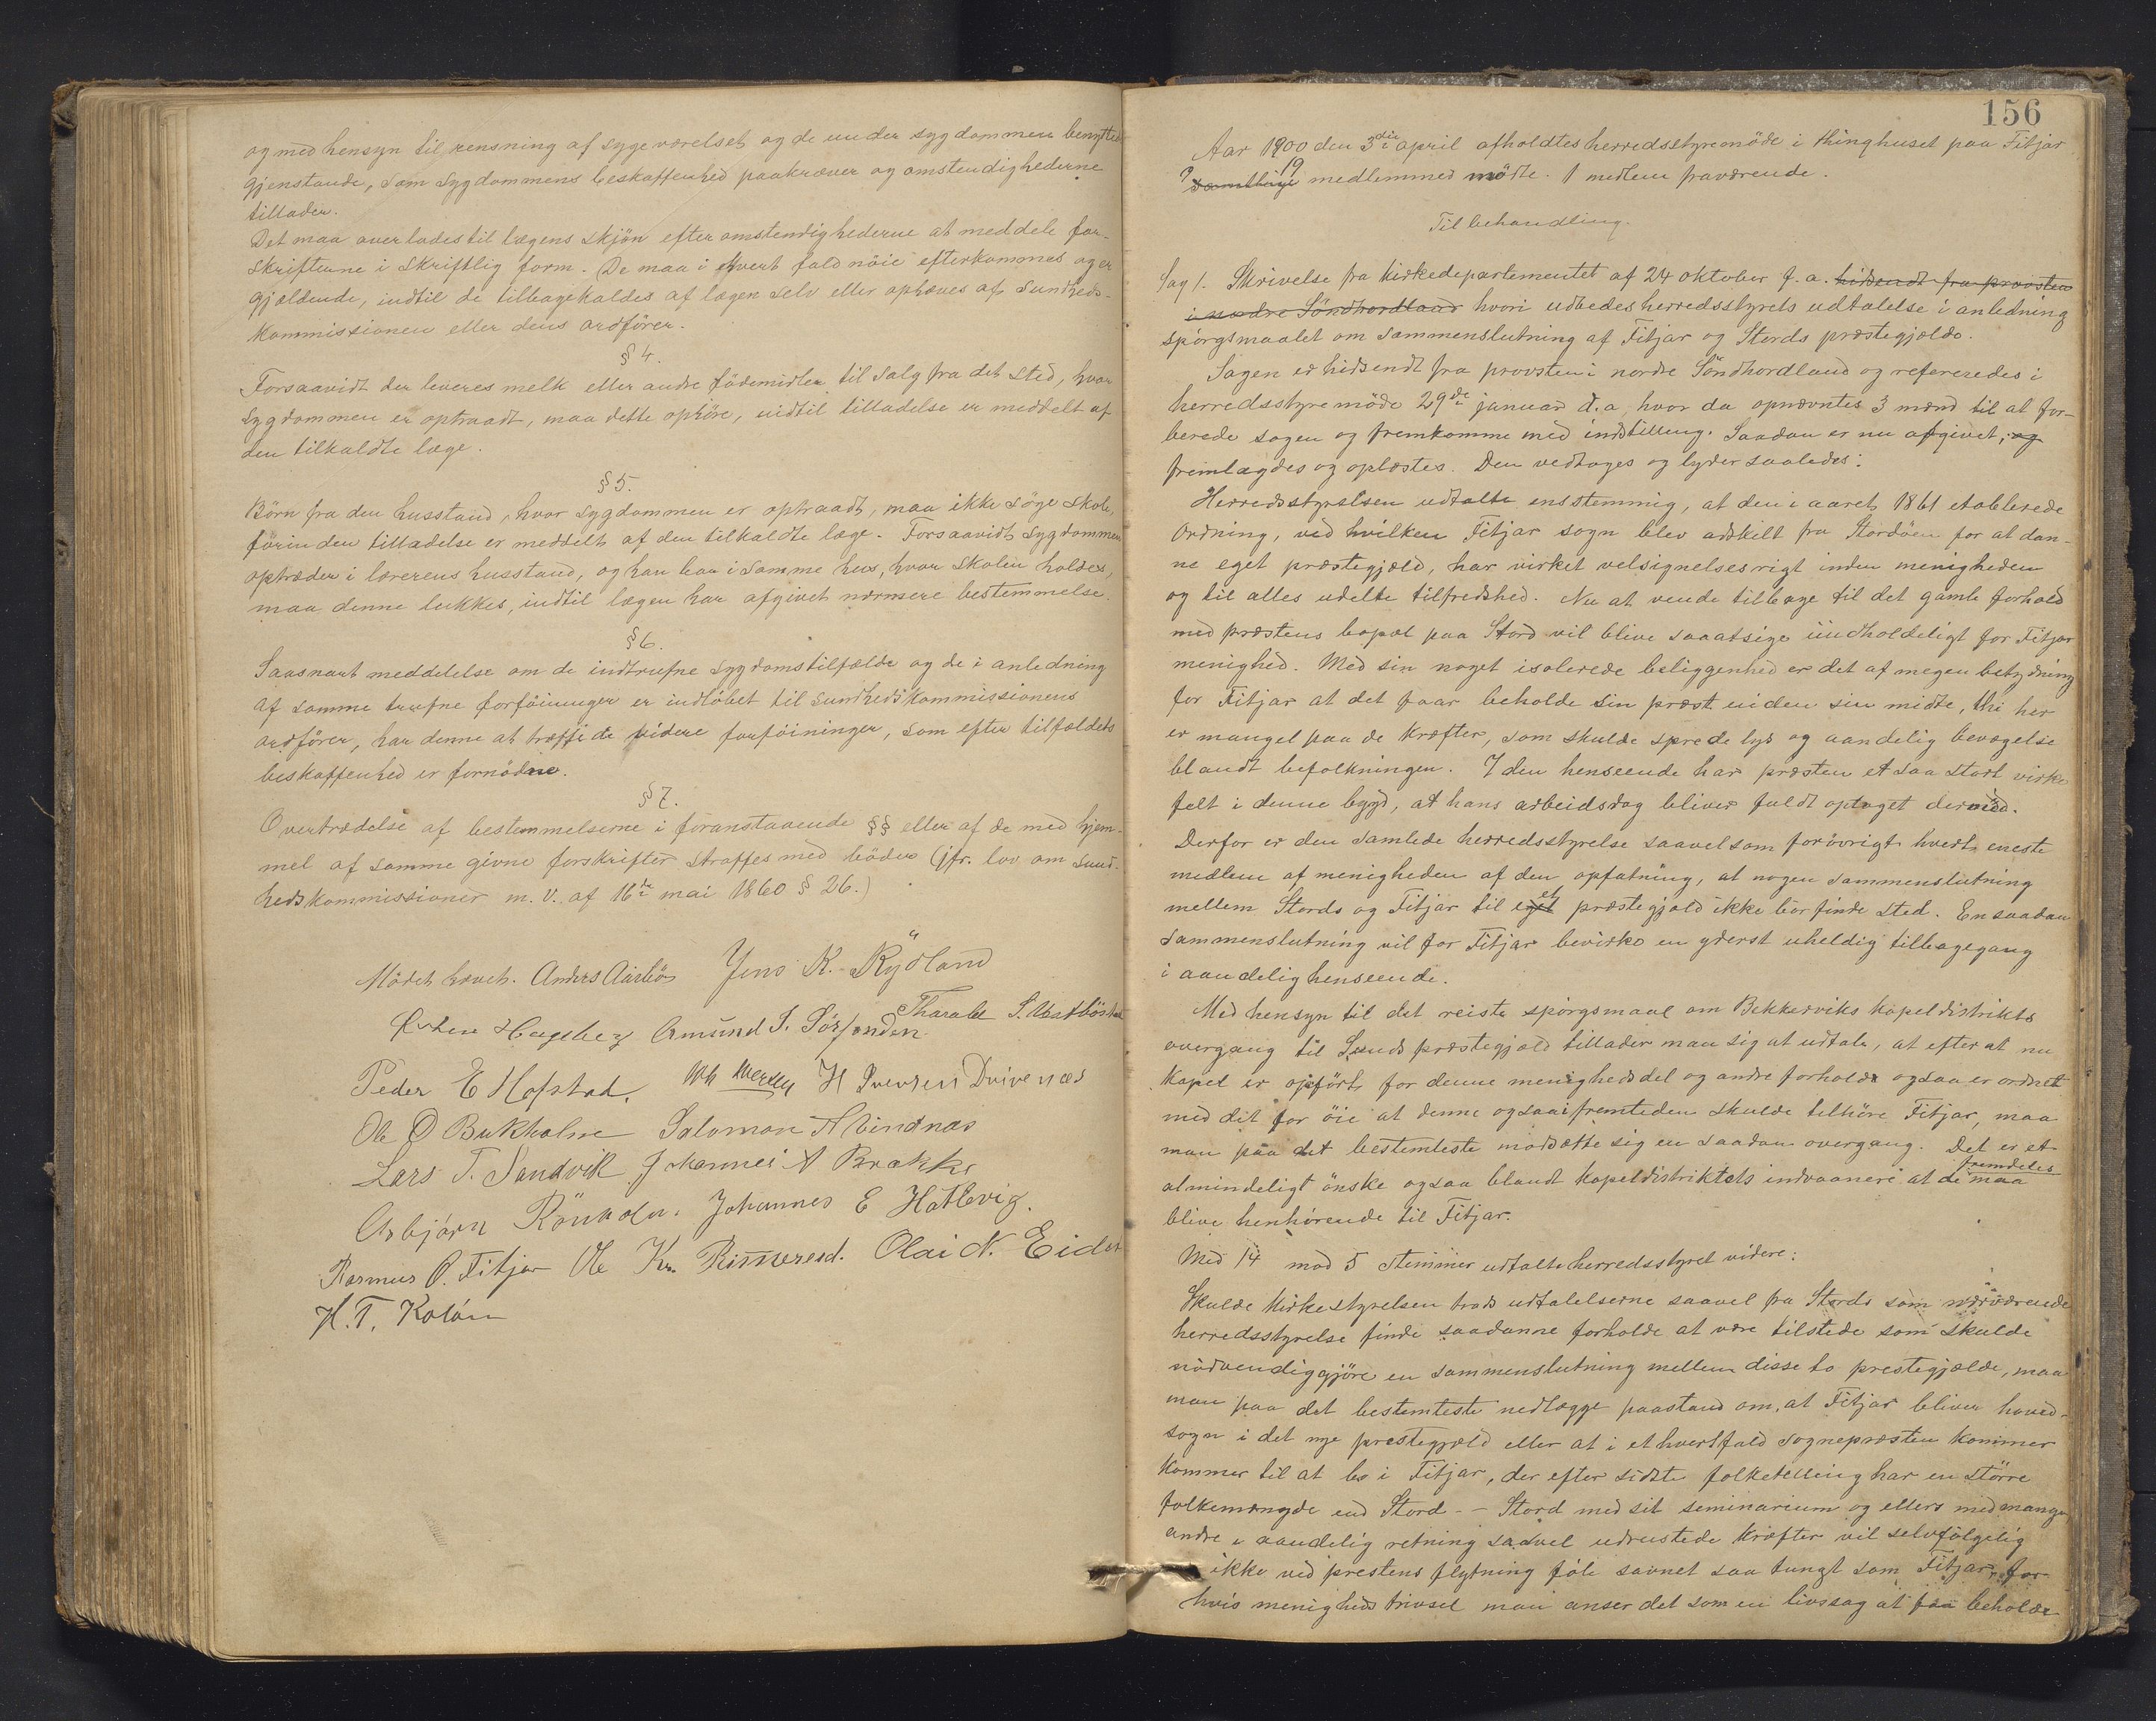 og med hensyn til rensning af sygeværelset og de under sygdommen benyttede
gjenstande, som sygdommens beskaffenhed paakræver og omstendighederne
tillader.
Det maa overlades til lægens skjøn efter omstendighederne at meddele for-
skrifterne i skriftlig form. De maa i hvert fald nöie efterkommes og er
gjældende, indtil de tilbagekaldes af lægen selv eller ophæves af Sundheds-
kommissionen eller dens ordförer.
§ 4.
Forsaavidt der leveres melk eller andre födemidler til salg fra det sted, hvor
sygdommen er optraadt, maa dette ophöre, indtil tilladelse er meddelt af
den tilkaldte læge.
§ 5.
Börn fra den husstand, hvor sygdommen er optraadt, maa ikke söge skole,
förinden tilladelse er meddelt af den tilkaldte læge. Forsaavidt sygdommen
optræder i lærerens husstand, og han bor i samme hus, hvor skolen holdes,
maa denne lukkes, indtil lægen har afgivet nærmere bestemmelse.
§ 6.
Saasnart meddelelse om de indtrufne sygdomstilfælde og de i anledning
af samme trufne forföininger er indlöbet til sundhedskommissionens
ordförer, har denne at træffe de videre forföininger, som efter tilfældets
beskaffenhed er fornödne.
§ 7.
Overtrædelse af bestemmelserne i foranstaaende §§ eller af de med hjem-
mel af samme givne forskrifter straffes med böder (jfr. lov om sund-
hedskommissioner m. v. af 16de mai 1860 § 26.)
Mödet hævet. Anders Aarbö Jens K. Rydland
Hageberg Amund T. Sörfonden Tharald S.
Peder E Hofstad. H Iversen Drivenæs
Ole O Bukholm Salomon A Vindnæs
Lars T. Sandvik Johannes A Brække
Asbjörn Rönholm. Johannes E Hatlevig.
Rasmus O. Fitjar Ole Kr. Rimmereid. Olai N. Eide
H. T. Kolöen
156
Aar 1900 den 3die april afholdtes herredsstyremöde i thinghuset paa Fitjar
samtlige 19 medlemmer mödte. 1 medlem fraværende.
Til behandling.
Sag 1. Skrivelse fra kirkedepartementet af 24 oktober f. a. hidsendt fra provsten
i nordre Söndhordland hvori udbedes herredsstyrets udtalelse i anledning
spörgsmaalet om sammenslutning af Fitjar og Stords præstegjælde.
Sagen er hidsendt fra provsten i nordre Söndhordland og refereredes i
herredsstyremöde 29de januar d. a, hvor da opnævntes 3 mænd til at for-
berede sagen og fremkomme med indstilling. Saadan er nu afgivet, og
fremlægdes og oplæstes. Den vedtages og lyder saaledes:
Herredsstyrelsen udtalte enstemmig, at den i aaret 1861 etablerede
ordning, ved hvilken Fitjar sogn blev adskilt fra Stordöen for at dan-
ne eget præstegjæld, har virket velsignelsesrigt inden menigheden
og til alles udelte tilfredshed. Nu at vende tilbage til det gamle forhold
med præstens bopæl paa Stord vil blive saaatsige uudholdeligt for Fitjar
menighed. Med sin noget isolerede beliggenhed er det af megen betydning
for Fitjar at det faar beholde sin præst inden sin midte, thi her
er mangel paa de kræfter, som skulde sprede lys og aandelig bevægelse
blandt befolkningen. I den henseende har præsten et saa stort virke-
felt i denne bygd, at hans arbeidsdag bliver fuldt optaget dermed.
Derfor er den samlede herredsstyrelse saavelsom forövrigt hvert eneste
medlem af menigheden af den opfatning, at nogen sammenslutning
mellem Stords og Fitjar til eget et præstegjæld ikke bör finde sted. En saadan
sammenslutning vil for Fitjar bevirke en yderst uheldig tilbagegang
i aandelig henseende.
Med hensyn til det reiste spörgsmaal om Bekkerviks kapeldistrikts
overgang til Sunds præstegjæld tillader man sig at udtale, at efter at nu
kapel er opfört for denne menighedsdel og andre forholde ogsaa er ordnet
med det for öie at denne ogsaa i fremtiden skulde tilhöre Fitjar, maa
man paa det bestemteste modsætte sig en saadan overgang. Det er et
almindeligt önske ogsaa blandt kapeldistriktets indvaanere at de fremdeles maa
blive henhörende til Fitjar.
Med 14 mod 5 stemmer udtalte herredsstyret videre:
Skulde kirkestyrelsen trods udtalelserne saavel fra Stords som nærværende
herredsstyrelse finde saadanne forholde at være tilstede som skulde
nödvendiggjöre en sammenslutning mellem disse to prestegjælde, maa
man paa det bestemteste nedlægge paastand om, at Fitjar bliver hoved-
sogn i det nye prestegjæld eller at i ethvertfald sognepræsten kommer
kommer til at bo i Fitjar, der efter sidste folketelling har en större
folkemængde end Stord - - Stord med sit seminarium og ellers med mange
andre i aandelig retning saavel udrustede kræfter vil selvfölgelig
ikke ved prestens flytning föle savnet saa tungt som Fitjar, for
hvis menigheds trivsel man anser det som en livssag at faa beholde